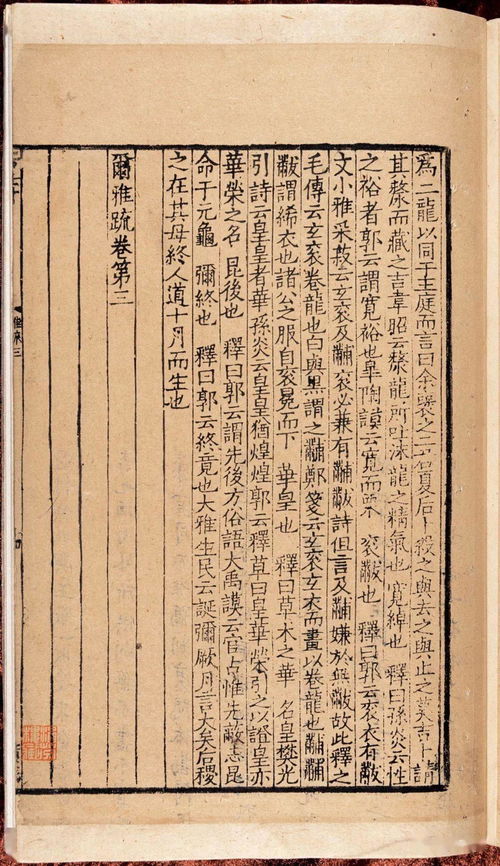 為二龍以同于王庭而言曰余褒之二君夏后卜殺之與去之與止之莫吉卜請
其漦而藏之吉韋昭云漦龍所吐沫龍之精氣也 寬綽也 釋曰孫炎云性
之裕者郭云謂寬裕也皐陶謨云寬而栗 袞黻也 釋曰郭云袞衣有黻
文小雅采菽云玄袞及黼袞必兼有黼黻詩但言及黼嫌於無黻故此釋之
毛傳云玄袞卷龍也白與黑謂之黼鄭箋云玄袞玄衣而畫以卷龍也黼黼
黻謂絺衣也諸公之服自袞冕而下 華皇也 釋曰草木之華一名皇樊光
引詩云皇皇者華孫炎云皇皇猶煌煌郭云釋草曰皇華榮引之以證皇亦
華榮之名 昆後也 釋曰郭云謂先後方俗語大禹謨云官占惟先蔽志昆
命于元龜 彌終也 釋曰郭云終竟也大雅生民云誕彌厥月言大矣后稷
之在其母終人道十月而生也
爾雅疏卷第三